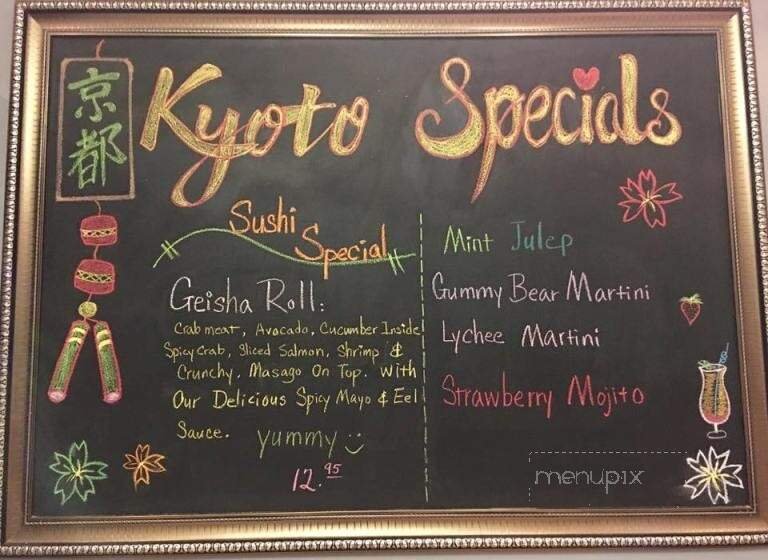 京都
Kyoto Specials
Sushi
Special
Geisha Roll:
Crab meat, Avocado, Cucumber Inside
Spicy Crab, Sliced Salmon, Shrimp &
Crunchy, Masago On Top. With
Our Delicious Spicy Mayo & Eel
Sauce. yummy
12.95
Mint Julep
Gummy Bear Martini
Lychee Martini
Strawberry Mojito
menupix